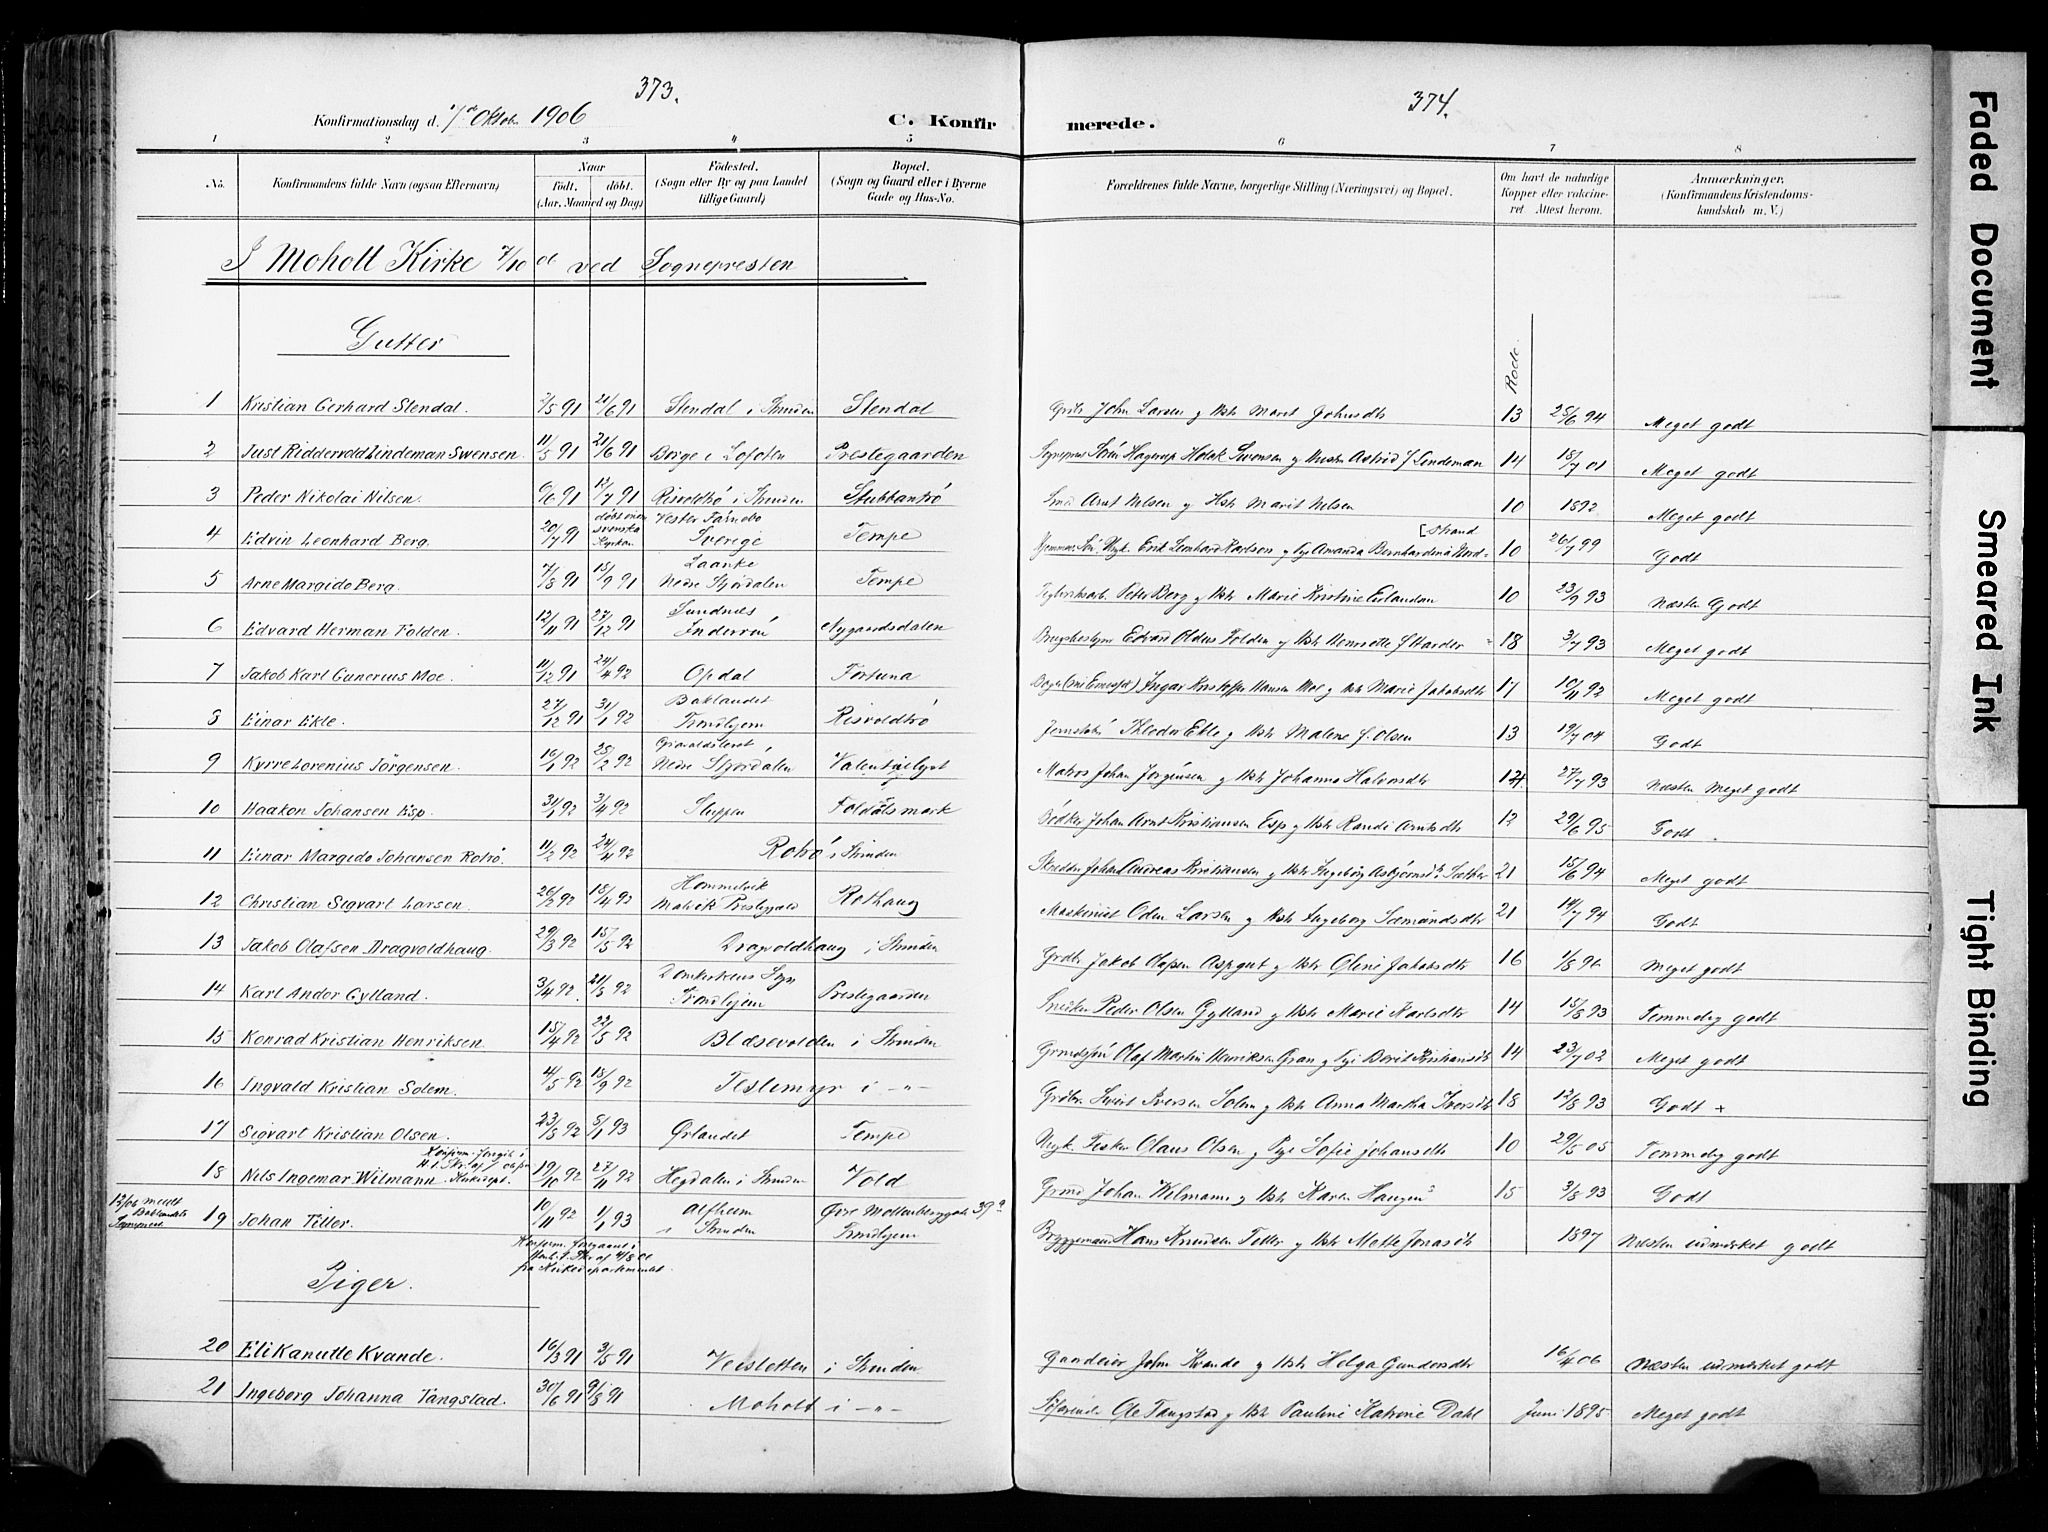 373.
374.
Konfirmationsdag d. 7de Oktober 1906
C. Konfirmerede.
1 2 3 4 5 6 7 8
No.
Konfirmandens fulde Navn (ogsaa Efternavn)
Naar
født. døbt.
(Aar, Maaned og Dag)
Födested.
(Sogn eller By og paa Landet
tillige Gaard)
Bopæl.
(Sogn og Gaard eller i Byerne
Gade og Hus-No.
Forældrenes fulde Navne, borgerlige Stilling (Næringsvei) og Bopæl.
Om havt de naturlige
Kopper eller vakcine-
ret Attest herom.
Anmærkninger.
(Konfirmandens Kristendoms-
kundskab m. V.)
I Moholt Kirke 7/10 06 ved Sognepresten
Gutter
Rode.
1 Kristian Gerhard Stendal. 2/5 91 21/6 91 Stendal i Strinden Stendal John Larsen og Hstr Marit Johnsdtr 13 25/6 94 Meget godt
2 Just Riddervold Lindeman Swensen. 11/5 91 21/6 91 Borge i Lofoten Prestegaarden Sognepres Sörén Hagerup Holck Svensen og Hustru Astrid J Lindeman 14 18/7 01 Meget godt
3 Peder Nikolai Nilsen. 6/6 91 12/7 91 Risvoldtrö i Strinden Stubbantrö Smed Arnt Nilsen og Hstr Marit Nilsen 10 1892 Meget godt
4 Edvin Leonhard Berg. 20/7 91 døbt i den svenska Kyrkan Vester Tärnebo Sverige Tempe Erik Leonhard Karlson og Pige Amanda Bernhardina Nord=[strand 10 26/7 99 Godt
5 Arne Margido Berg. 7/8 91 15/9 91 Laanke Nedre Stjördalen Tempe Teglverksarb. Peter Berg og Hstr Marie Kristine Erlandsen 10 23/9 93 Næsten Godt
6 Edvard Herman Folden. 12/11 91 27/12 91 Sundnæs Inderöen Nygaardsdalen Brugsbestyrer Edvard Oldus Folden og Hstr Henriette J Harder 18 3/7 93 Meget godt
7 Jakob Karl Gunerius Moe. 11/12 91 24/4 92 Opdal Fortuna Ingar Kristoffer Hansen Moe og Hstr Marie Jakobsdtr 17 10/11 92 Meget godt
8 Einar Ekle. 27/12 91 31/1 92 Baklandet Trondhjem Risvoldtrö Theodor Ekle og Hstr Malene J. Olsen 13 19/7 04 Godt
9 Kyrre Lorenius Jörgensen. 16/1 92 28/2 92 Nedre Stjördalen Valentinlyst Matros Johan Jörgensen og Hstr Johanna Halvorsdtr 12 27/7 93 Næsten Meget godt
10 Haakon Johansen Esp. 31/1 92 3/4 92 Sluppen Foldalsmark Bödker Johan Arnt Kristiansen Esp og Hstr Randi Arntsdtr 12 29/6 95 Godt
11 Einar Margido Johansen Rotrö. 11/2 92 24/4 92 Rotrö i Strinden Skrædder Johan Andreas Kristiansen og Hstr Ingeborg Asbjörnsdtr Sæther 21 15/6 94 Meget godt
12 Christian Sigvart Larsen. 26/2 92 18/4 92 Hommelvik Malvik Prestegjeld Rothaug Maskinist Oden Larsen og Hstr Ingeborg Sæmundsdtr 21 14/7 94 Godt
13 Jakob Olafsen Dragvoldhaug. 29/3 92 15/5 92 Dragvoldhaug i Strinden Jakob Olafsen Aspgut og Hstr Oline Jakobsdtr 16 Meget godt
14 Karl Andor Gylland. 3/4 92. 21/5 92 Domkirkens Sogn Trondhjem Prestegaarden Snedker Peder Olsen Gylland og Hstr Marie Karlsdtr 14 15/8 93 Temmelig godt
15 Konrad Kristian Henriksen 15/4 92 22/5 92 Blæsevolden i Strinden Olaf Martin Henriksen Gran og Pige Berit Kristiansdtr 14 23/7 02 Meget godt
16 Ingvald Kristian Solem. 4/5 92 18/9 92 Teslimyr i -"- Sivert Iversen Solem og Hstr Anna Martha Iversdtr 18 12/8 93 Godt +
17 Sigvart Kristian Olsen. 23/5 92 8/1 93 Ørlandet Tempe Ungk. Fisker Olaus Olsen og Pige Sofie Johansdtr 10 29/5 05 Temmelig godt
18 Nils Ingemar Wilmann 19/10 92 27/11 92 Hegdalen i Strinden Vold Johan Wilmann og Hstr Karen Haugen 15 3/8 93 Godt
19 Johan Tiller. 10/11 92 1/1 93 Alfheim i Strinden Øvre Møllenberggade 39 Trondhjem Bryggemand Hans Knudsen Tiller og Hstr Mette Jonasdtr 1897 Næsten udmerket godt
Konfirm. foregaaet i
fra Kirkedepartementet.
Piger.
20 Eli Kanutte Kvande. 16/3 91 3/5 91 Veisletten i Strinden Gaardeier John Kvande og Hstr Helga Gundersdtr 16/4 06 Næsten udmerket godt
21 Ingeborg Johanna Tangstad. 30/6 91 9/8 91 Moholt i -"- Söfarende Ole Tangstad og Hstr Pauline Katrine Dahl Juni 1895 Meget godt
Faded Document
Smeared Ink
Tight Binding